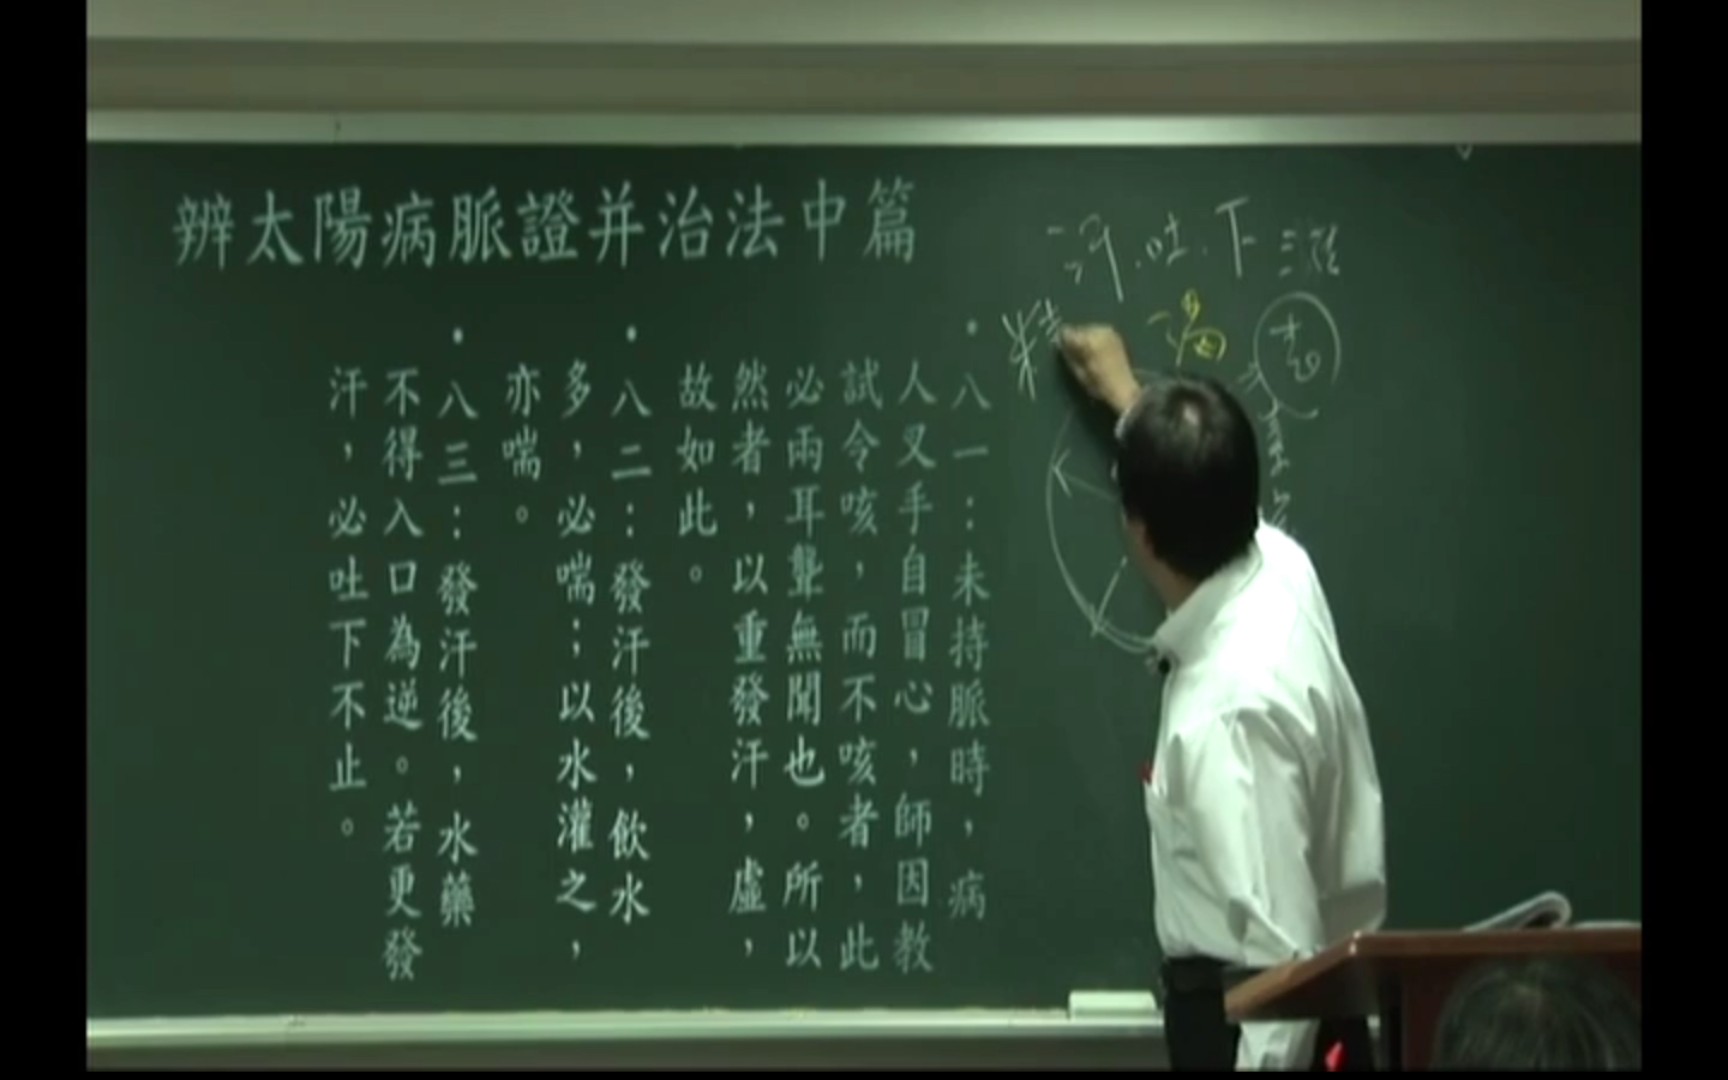 辨太陽病脈證并治法中篇
•八一：未持脈時，病
人叉手自冒心，師因教
試令咳，而不咳者，此
必兩耳聾無聞也。所以
然者，以重發汗，虛，
故如此。
•八二：發汗後，飲水
多，必喘；以水灌之，
亦喘。
•八三：發汗後，水藥
不得入口為逆。若更發
汗，必吐下不止。
汗．吐．下三法